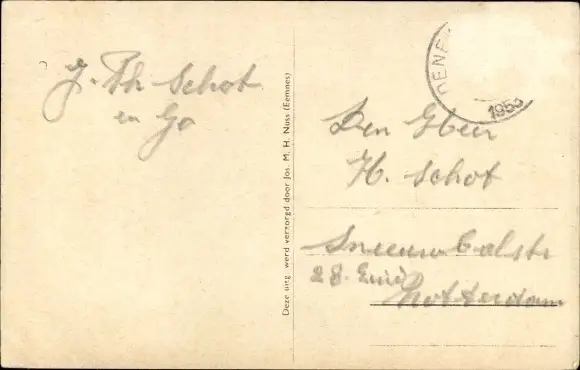 J. Th Schot
en Go
Deze uitg. werd verzorgd door Jos. M. H. Nuss (Eemnes)
DENE
1953
Den Heer
H. Schot
Sneeuwbalstr
28.
Rotterdam